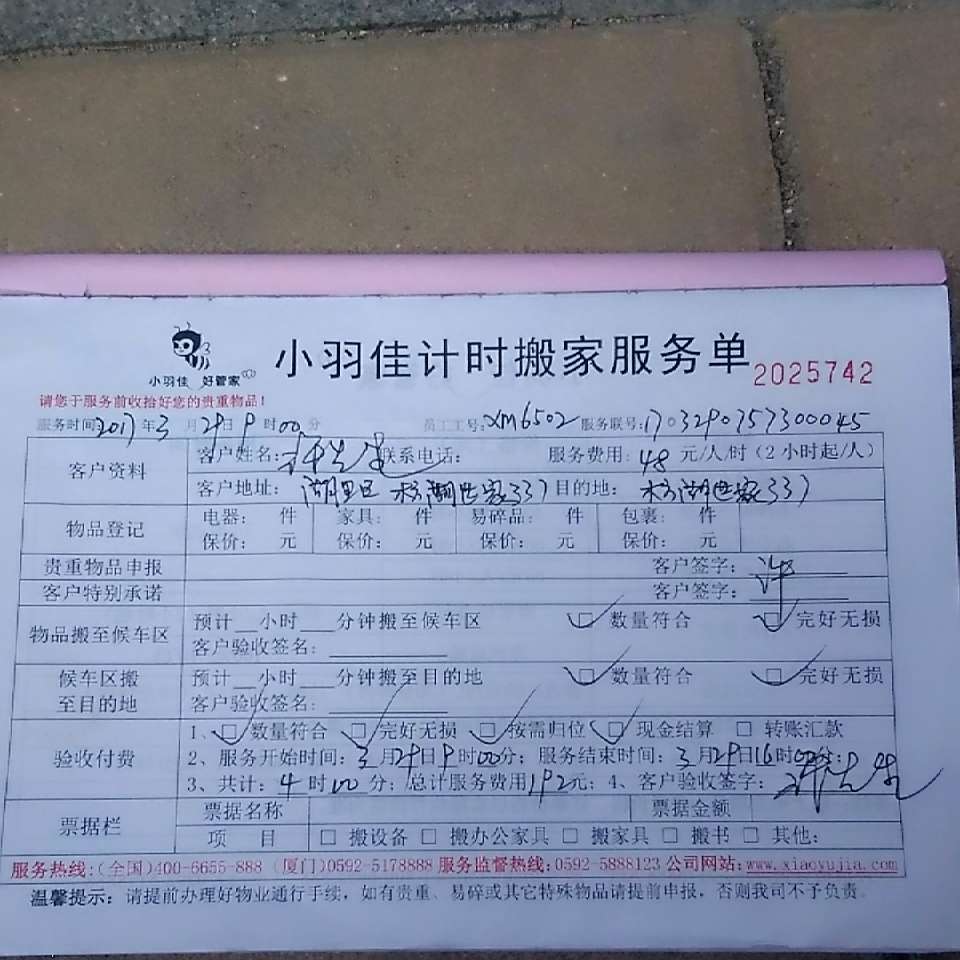 小羽佳 好管家
小羽佳计时搬家服务单 2025742
请您于服务前收拾好您的贵重物品！
服务时间 2017年3月29日9时00分 员工工号: XM6502 服务联号: 1703290757300045
客户资料 客户姓名: 联系电话: 服务费用: 48 元/人/时（2小时起/人）
客户地址: 湖里区 湖世家337 目的地: 湖世家337
物品登记 电器: 件 家具: 件 易碎品: 件 包裹: 件
保价: 元 保价: 元 保价: 元 保价: 元
贵重物品申报 客户签字: 许
客户特别承诺 客户签字:
物品搬至候车区 预计__小时___分钟搬至候车区 ☑ 数量符合 ☑ 完好无损
客户验收签名:
候车区搬至目的地 预计__小时___分钟搬至目的地 ☑ 数量符合 ☑ 完好无损
客户验收签名:
验收付费 1、☑ 数量符合 ☑ 完好无损 ☑ 按需归位 ☑ 现金结算 □ 转账汇款
2、服务开始时间: 3月29日9时00分; 服务结束时间: 3月29日16时00分;
3、共计: 4时00分; 总计服务费用192元; 4、客户验收签字:
票据栏 票据名称 票据金额
项 目 □ 搬设备 □ 搬办公家具 □ 搬家具 □ 搬书 □ 其他:
服务热线:(全国)400-6655-888 (厦门)0592-5178888 服务监督热线:0592-5888123 公司网站:www.xiaoyujia.com
温馨提示: 请提前办理好物业通行手续，如有贵重、易碎或其它特殊物品请提前申报，否则我司不予负责。